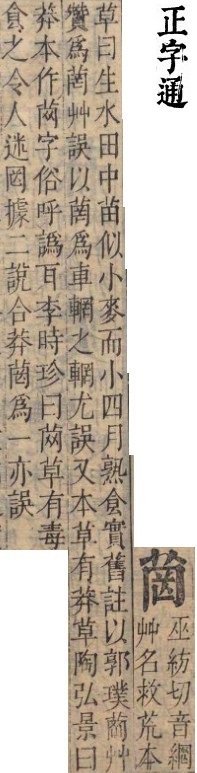 正字通
䓲
巫紡切音網
艸名救荒本
草曰生水田中苗似小麥而小四月熟食實舊註以郭璞
䓲艸
贊爲䓲艸誤以䓲爲車輞之輞尤誤又本草有莽草陶弘景曰
莽本作䒽字俗呼譌耳李時珍曰䒽草有毒
食之令人迷罔據二說合莽䓲爲一亦誤